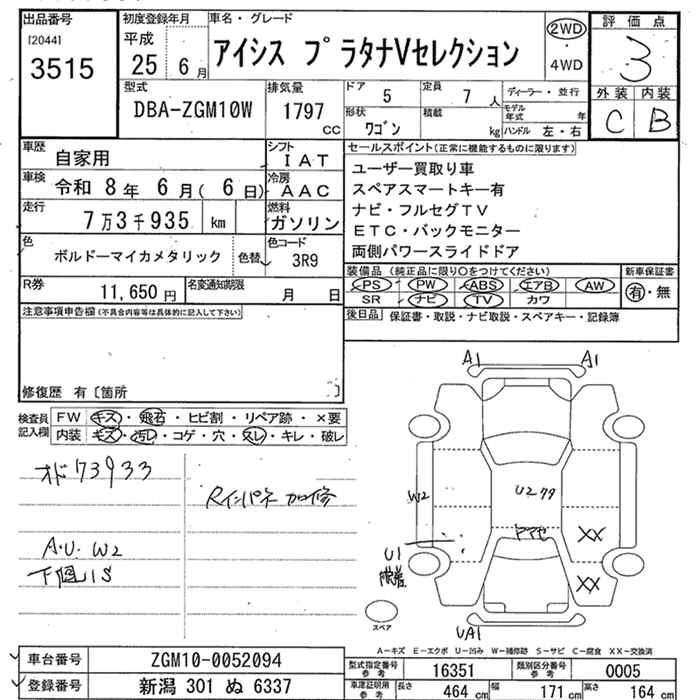 出品番号
[2044]
3515
初度登録年月
平成
25 6月
車名・グレード
アイシス プラタナVセレクション
2WD
4WD
評価点
3
外装 内装
C B
型式
DBA-ZGM10W
排気量
1797
CC
ドア 5
定員 7人
形状
ワゴン
積載
kg
ディーラー・並行
モデル年式 年
ハンドル 左・右
車歴
自家用
シフト
IAT
車検 令和 8年 6月( 6日)
冷房
AAC
走行
7万3千935 km
燃料
ガソリン
色
ボルドーマイカメタリック
色替
色コード
3R9
R券
11,650円
名変通知期限
月 日
セールスポイント(正常に機能するものに限ります)
ユーザー買取り車
スペアスマートキー有
ナビ・フルセグTV
ETC・バックモニター
両側パワースライドドア
装備品 (純正品に限り○をつけてください)
PS PW ABS エアB AW
SR ナビ TV カワ
新車保証書
有・無
後日品 保証書・取説・ナビ取説・スペアキー・記録簿
注意事項申告欄(不具合内容等は具体的に記入して下さい)
修復歴 有〔箇所 〕
検査員記入欄
FW キズ・飛石・ヒビ割・リペア跡・×要
内装 キズ・汚レ・コゲ・穴・スレ・キレ・破レ
オド73933
Rインパネ加修
A.U. W2
下廻りS
A1 A1
W2
U279
U1
XX
XX
UA1
スペア
A-キズ E-エクボ U-凹み W-補修跡 S-サビ C-腐食 XX-交換済
車台番号
ZGM10-0052094
登録番号
新潟 301 ぬ 6337
型式指定番号
参考
16351
類別区分番号
参考
0005
車庫証明用
参考
長さ 464 cm
幅 171 cm
高さ 164 cm